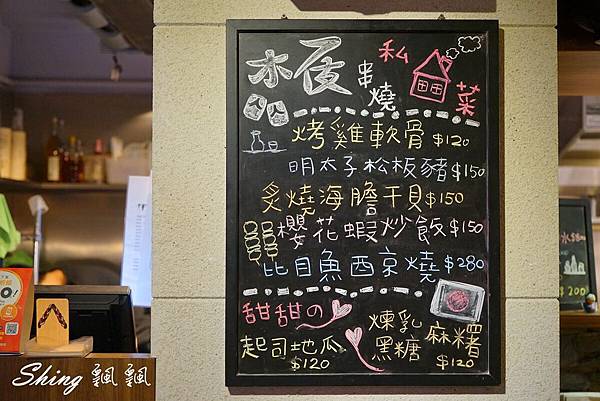 木屐串燒 私菜
烤雞軟骨$120
明太子松板豬$150
炙燒海膽干貝$150
櫻花蝦炒飯$150
比目魚西京燒$280
甜甜の
起司地瓜
$120
煉乳
黑糖
麻糬
$120
$200
Shing 飄飄